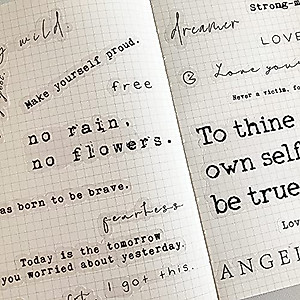 wild.
Make yourself proud.
free
no rain,
no flowers.
as born to be brave.
fearless
Today is the tomorrow
you worried about yesterday.
I got this.
Strong-m
dreamer
LOVE
Love you
Never a victim, fo
To thine
own self
be true
Lov
ANGEL